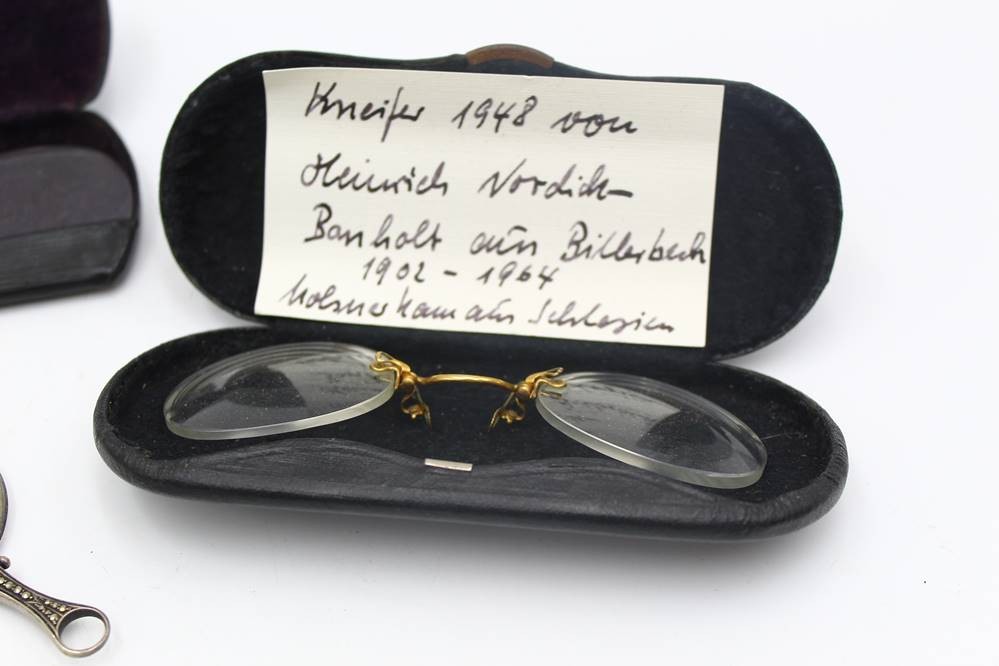 Kneifer 1948 von
Heinrich Nordick-
Banholt aus Billerbeck
1902 - 1964
kam aus Schlesien